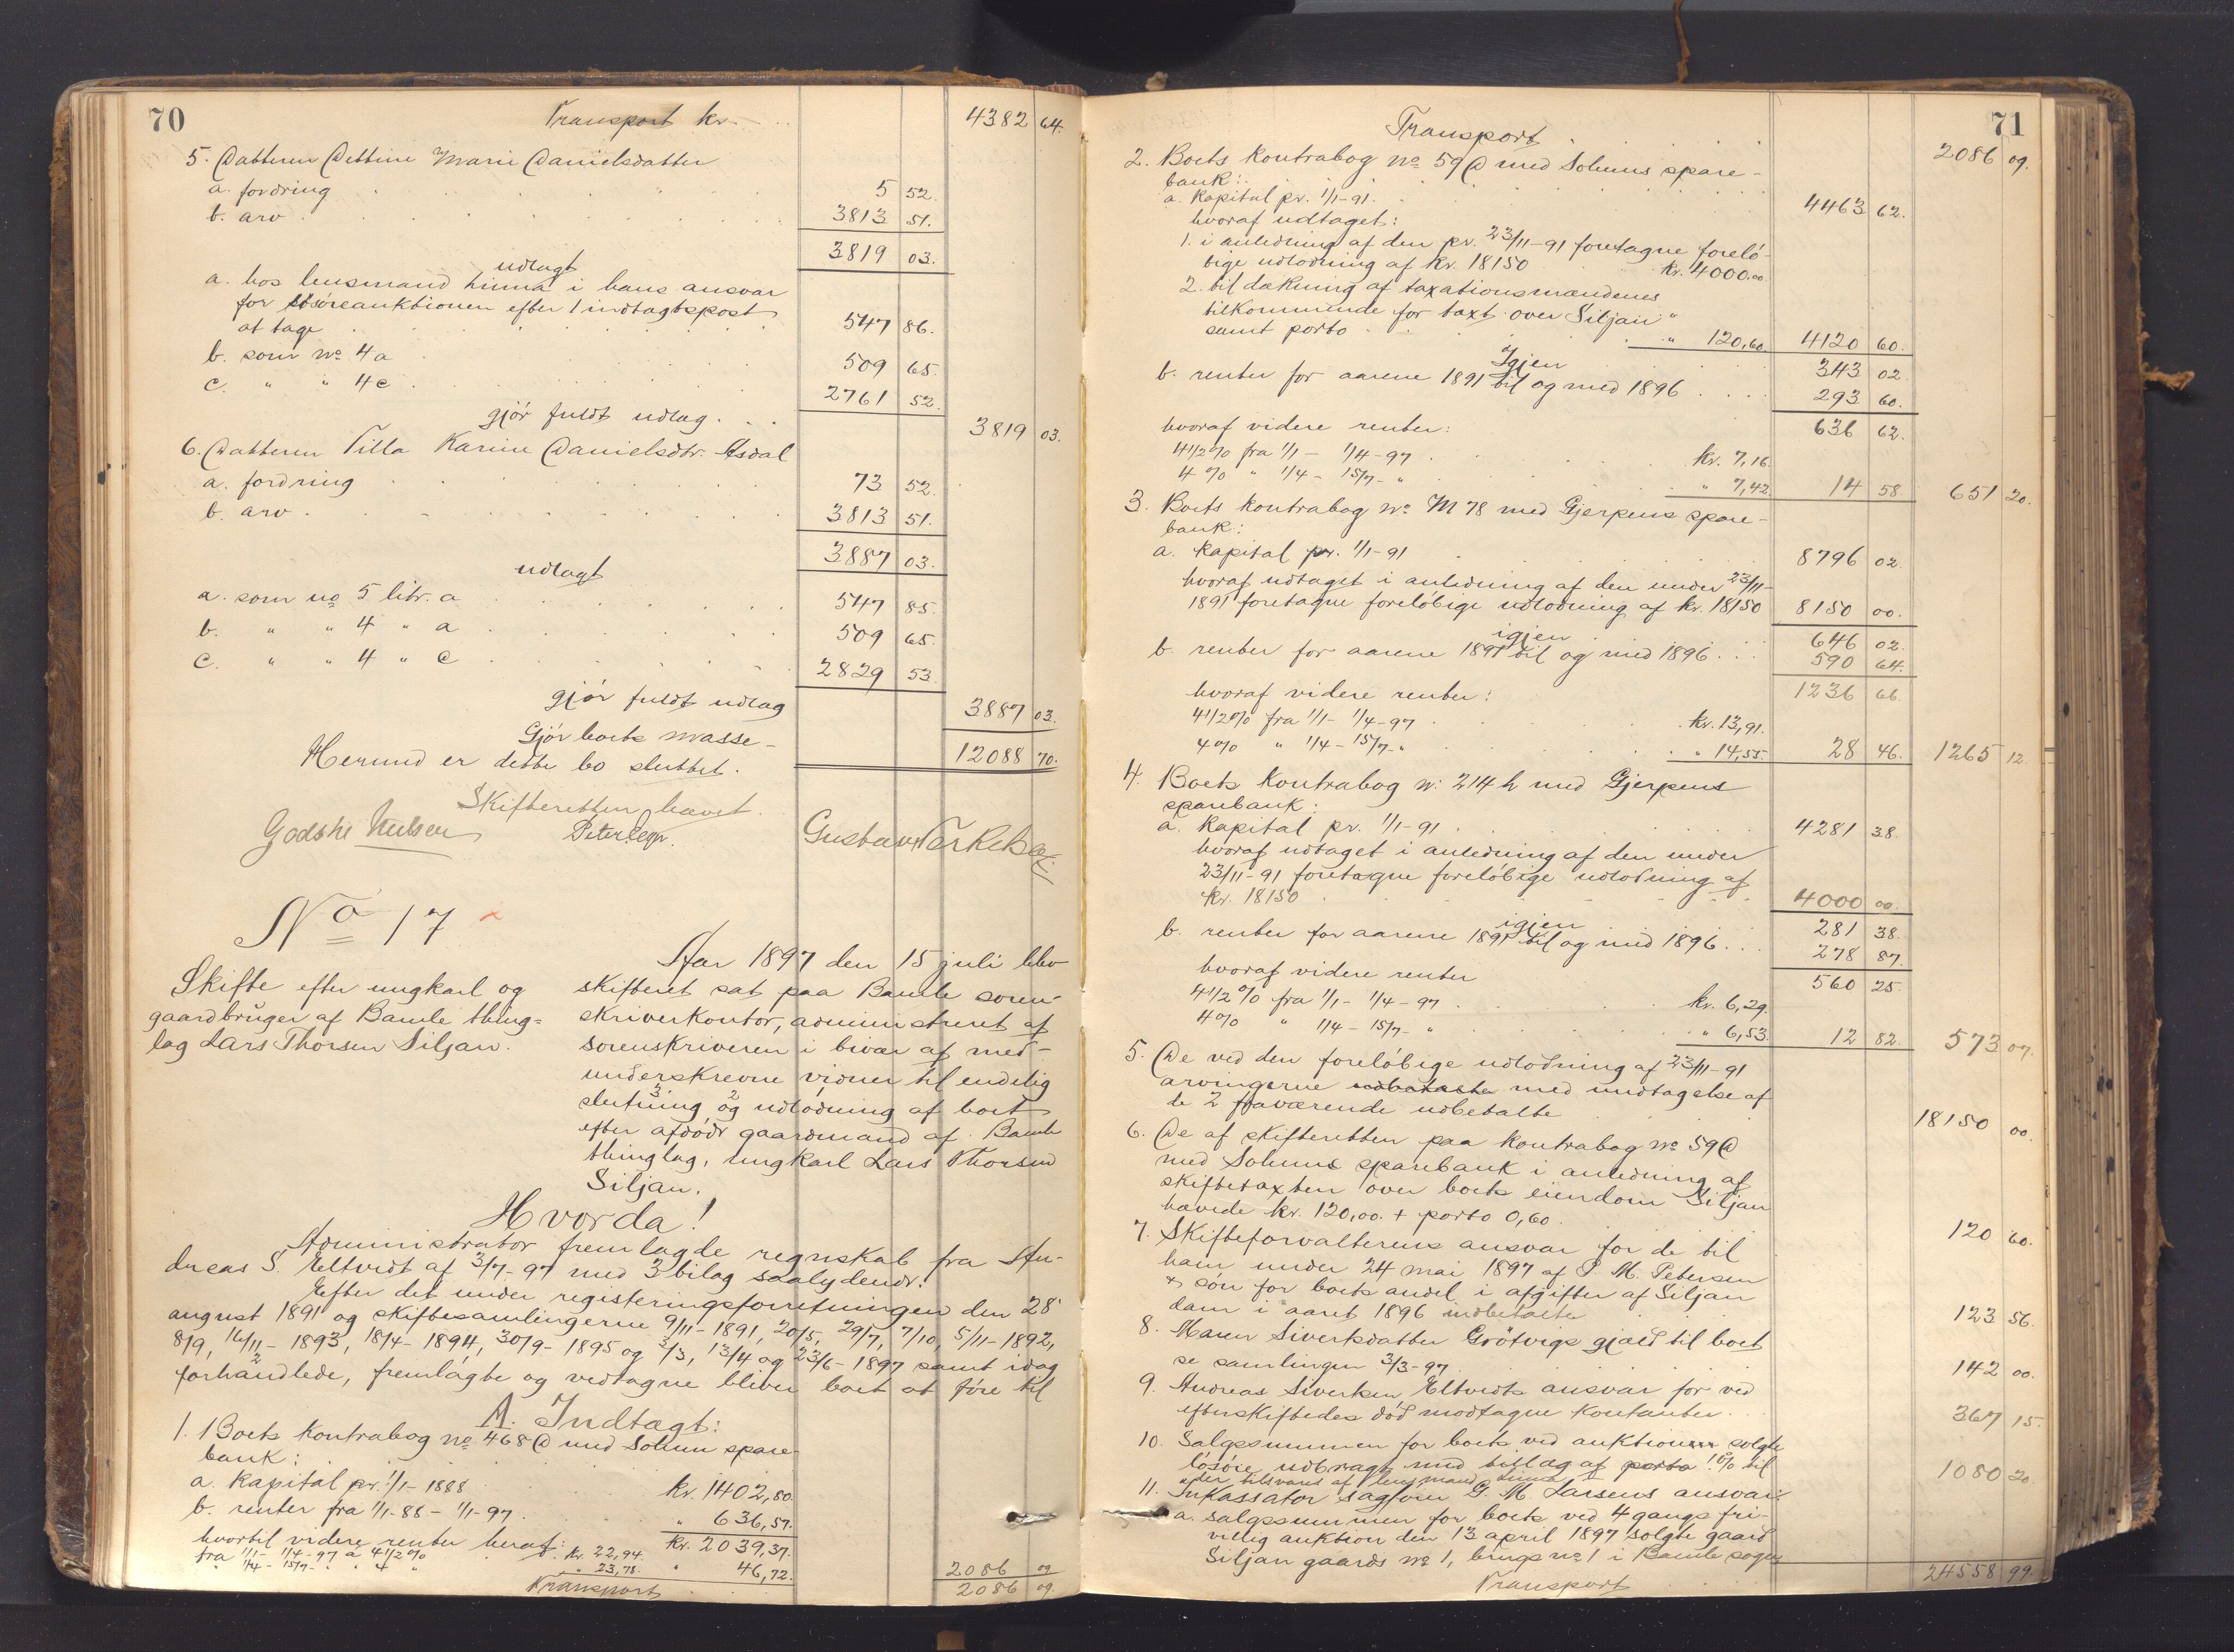 70
Transport kr. 4382 64.
5. Datteren Dettine Marie Danielsdatter
a. fordring 5 52.
b. arv 3813 51.
3819 03.
udlagt
a. hos lensmand Finna i hans ansvar
for løsøreauktionen efter 1 indtægtspost
at tage 547 86.
b. som No 4 a 509 65.
c. " " 4 c 2761 52.
gjør fuldt udlag 3819 03.
6. Datteren Tilla Karine Danielsdtr. Asdal
a. fordring 73 52.
b. arv 3813 51.
3887 03.
udlagt
a. som no 5 litr. a 547 85.
b. " " 4 " a 509 65.
c. " " 4 " c 2829 53.
gjør fuldt udlag 3887 03.
Gjør boets masse - 12088 70.
Hermed er dette bo sluttet.
Skifteretten hævet.
Godske Nielsen Peter Gustav
No 17
Skifte efter ungkarl og
gaardbruger af Bamle thing=
lag Lars Thorsen Siljan.
Aar 1897 den 15 juli blev
skifteret sat paa Bamle soren-
skriverkontor, administreret af
sorenskriveren i bivær af med-
underskrevne vidner til endelig
slutning og udlodning af boet
efter afdøde gaardmand af Bamle
thinglag, ungkarl Lars Thorsen
Siljan.
Hvorda!
Administrator fremlagde regnskab fra An-
dreas S. Eltvedt af 3/7-97 med 3 bilag saalydende:
Efter det under registeringsforretningen den 28
august 1891 og skiftesamlingerne 9/11-1891, 20/5, 29/7, 7/10, 5/11-1892,
8/9, 16/11-1893, 18/4-1894, 30/9-1895 og 3/3, 13/4 og 23/6-1897 samt idag
forhandlede, fremlagte og vedtagne bliver boet at føre til
A. Indtægt:
1. Boets kontrabog no 468 D med Solum spare-
bank:
a. kapital pr. 1/1-1888 kr. 1402,80.
b. renter fra 1/1-88 - 1/1-97 " 636,57.
kr. 2039,37.
hvortil videre renter heraf:
fra 1/1- 1/4-97 a 4 1/2 % kr. 22,94.
" 1/4- 15/7- " " 4 " " 23,78. " 46,72. 2086 09
Transport 2086 09.
71
Transport 2086 09.
2. Boets kontrabog No 59 D med Solums spare-
bank:
a. kapital pr. 1/1-91 4463 62.
hvoraf udtaget:
1. i anledning af den pr. 23/11-91 foretagne forelø-
bige udlodning af kr. 18150 kr. 4000.00
2. til dækning af taxationsmændenes
tilkommende for taxt over Siljan "
samt porto " 120,60. 4120 60.
Igjen 343 02
b. renter for aarene 1891 til og med 1896 293 60.
636 62.
hvoraf videre renter:
4 1/2 % fra 1/1 - 1/4-97 kr. 7,16.
4 % " 1/4 - 15/7- " " 7,42. 14 58. 651 20.
3. Boets kontrabog No M 78 med Gjerpens spare-
bank:
a. kapital pr. 1/1-91 8796 02.
hvoraf udtaget i anledning af den under 23/11-
1891 foretagne foreløbige udlodning af kr. 18150 8150 00.
igjen 646 02.
b. renter for aarene 1891 til og med 1896 590 64.
1236 66.
hvoraf videre renter:
4 1/2 % fra 1/1- 1/4-97 kr. 13,91.
4 % " 1/4-15/7- " " 14,55. 28 46. 1265 12.
4. Boets kontrabog No 214 h med Gjerpens
sparebank:
a. kapital pr. 1/1-91 4281 38.
hvoraf udtaget i anledning af den under
23/11-91 foretagne foreløbige udlodning af
kr. 18150 4000 00.
igjen 281 38.
b. renter for aarene 1891 til og med 1896 278 87.
560 25.
hvoraf videre renter
4 1/2 % fra 1/1- 1/4-97 kr. 6,29.
4 % " 1/4 - 15/7- " " 6,53. 12 82. 573 07.
5. De ved den foreløbige udlodning af 23/11-91
arvingerne udbetalte med undtagelse af
de 2 fraværende udbetalte 18150 00.
6. De af skifteretten paa kontrabog No 59 D
med Solums sparebank i anledning af
skiftetaxten over boets eiendom Siljan
hævede kr. 120,00. + porto 0,60. 120 60.
7. Skifteforvalterens ansvar for de til
ham under 24 mai 1897 af P. M. Petersen
& søn for boets andel i afgiften af Siljan
dam i aaret 1896 indbetalte 123 56.
8. Maren Sivertsdatter Grøtvigs gjæld til boet
se samlingen 3/3-97 142 00.
9. Andreas Sivertsen Eltvedts ansvar for ved
efterskiftedes død modtagne kontanter 367 15.
10. Salgssummen for boets ved auktionen solgte
løsøre udbragt med tillæg af porto 1 % til 1080 20.
der tilsvares af lensmand Finna
11. Inkassator sagfører G. M. Larsens ansvar:
a. salgssummen for boets ved 4 gangs fri-
villig auktion den 13 april 1897 solgte gaard
Siljan gaards No 1, brugs no 1 i Bamle sogn
Transport 24558 99.